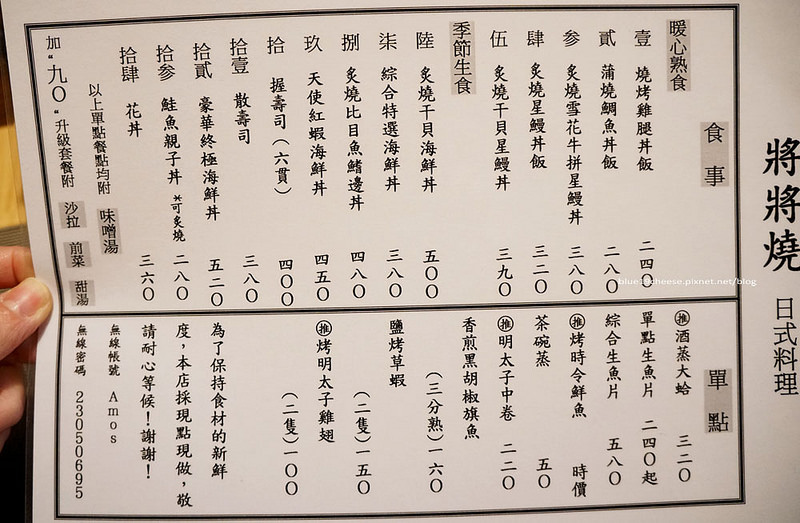 將將燒 日式料理
食事
暖心熟食
壹 燒烤雞腿丼飯 二四〇
貳 蒲燒鯛魚丼飯 二八〇
參 炙燒雪花牛拼星鰻丼 三八〇
肆 炙燒星鰻丼飯 三二〇
伍 炙燒干貝星鰻丼 三九〇
季節生食
陸 炙燒干貝海鮮丼 五〇〇
柒 綜合特選海鮮丼 三八〇
捌 炙燒比目魚鰭邊丼 四八〇
玖 天使紅蝦海鮮丼 四五〇
拾 握壽司(六貫) 四〇〇
拾壹 散壽司 三八〇
拾貳 豪華終極海鮮丼 五二〇
拾參 鮭魚親子丼 *可炙燒 二八〇
拾肆 花丼 三六〇
以上單點餐點均附 味噌湯
加“九〇“升級套餐附 沙拉 前菜 甜湯
單點
推 酒蒸大蛤 三二〇
單點生魚片 二四〇起
綜合生魚片 五八〇
推 烤時令鮮魚 時價
茶碗蒸 五〇
推 明太子中卷 二二〇
香煎黑胡椒旗魚
(三分熟)一六〇
鹽烤草蝦
(二隻)一五〇
推 烤明太子雞翅
(二隻)一〇〇
為了保持食材的新鮮
度,本店採現點現做,敬
請耐心等候!謝謝!
無線帳號 Amos
無線密碼 23050695
blue1scheese.pixnet.net/blog